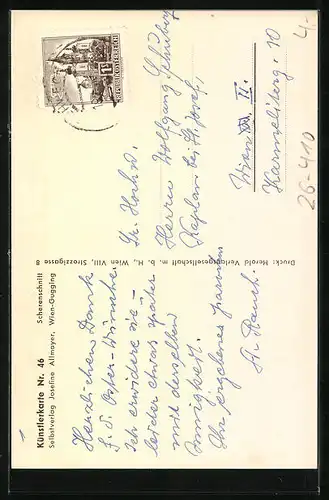 Künstlerkarte Nr. 46 Scherenschnitt
Selbstverlag Josefine Allmayer, Wien-Gugging
Herzlichen Dank
f. d. Oster-Wünsche.
Ich erwidere sie –
leider etwas später
mit derselben
Innigkeit.
Ihr ergebener
Fr. Rauch.
Druck: Herold Verlagsgesellschaft m. b. H., Wien VIII, Strozzigasse 8
REPUBLIK ÖSTERREICH
Sr. Hochw.
Herrn Wolfgang
Kaplan bei St. Josef,
Wien II.
Karmeliterg. 10
26-410
4.-